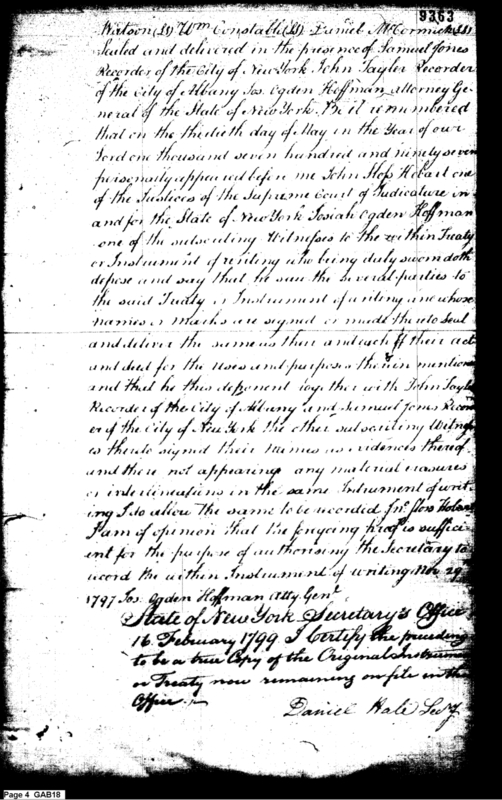 9363
Watson (LS) Wm Constable (LS) Daniel McCormick (LS)
Sealed and delivered in the presence of Samuel Jones
Recorder of the City of New York John Tayler Recorder
of the City of Albany Jos. Ogden Hoffman Attorney Ge-
neral of the State of New York. Be it remembered
that on the thirtieth day of May in the Year of our
Lord one thousand seven hundred and ninety seven
personally appeared before me John Sloss Hobart one
of the Justices of the Supreme Court of Judicature in
and for the State of New York Josiah Ogden Hoffman
one of the subscribing Witnesses to the within Treaty
or Instrument of writing who being duly sworn doth
depose and say that he saw the several parties to
the said Treaty or Instrument of writing and whose
names or marks are signed or made thereto Seal
and deliver the same as their and each of their act
and deed for the Uses and purposes therein mentioned
and that he this deponent together with John Tayler
Recorder of the City of Albany and Samuel Jones Record
er of the City of New York the other subscribing Witness
es thereto signed their names as evidences thereof
and there not appearing any material erasures
or interlineations in the same Instrument of writ
ing I do allow the same to be recorded Jno. Sloss Hobart
I am of opinion that the foregoing proof is suffici
ent for the purpose of authorising the Secretary to
record the within Instrument of writing Nov 29th
1797 Jos. Ogden Hoffman Atty. Genl.
State of New York Secretary's Office
16 February 1799 I Certify the preceding
to be a true Copy of the Original Instrument
or Treaty now remaining on file in this
Office.
Daniel Hale Secy.
Page 4 GAB18